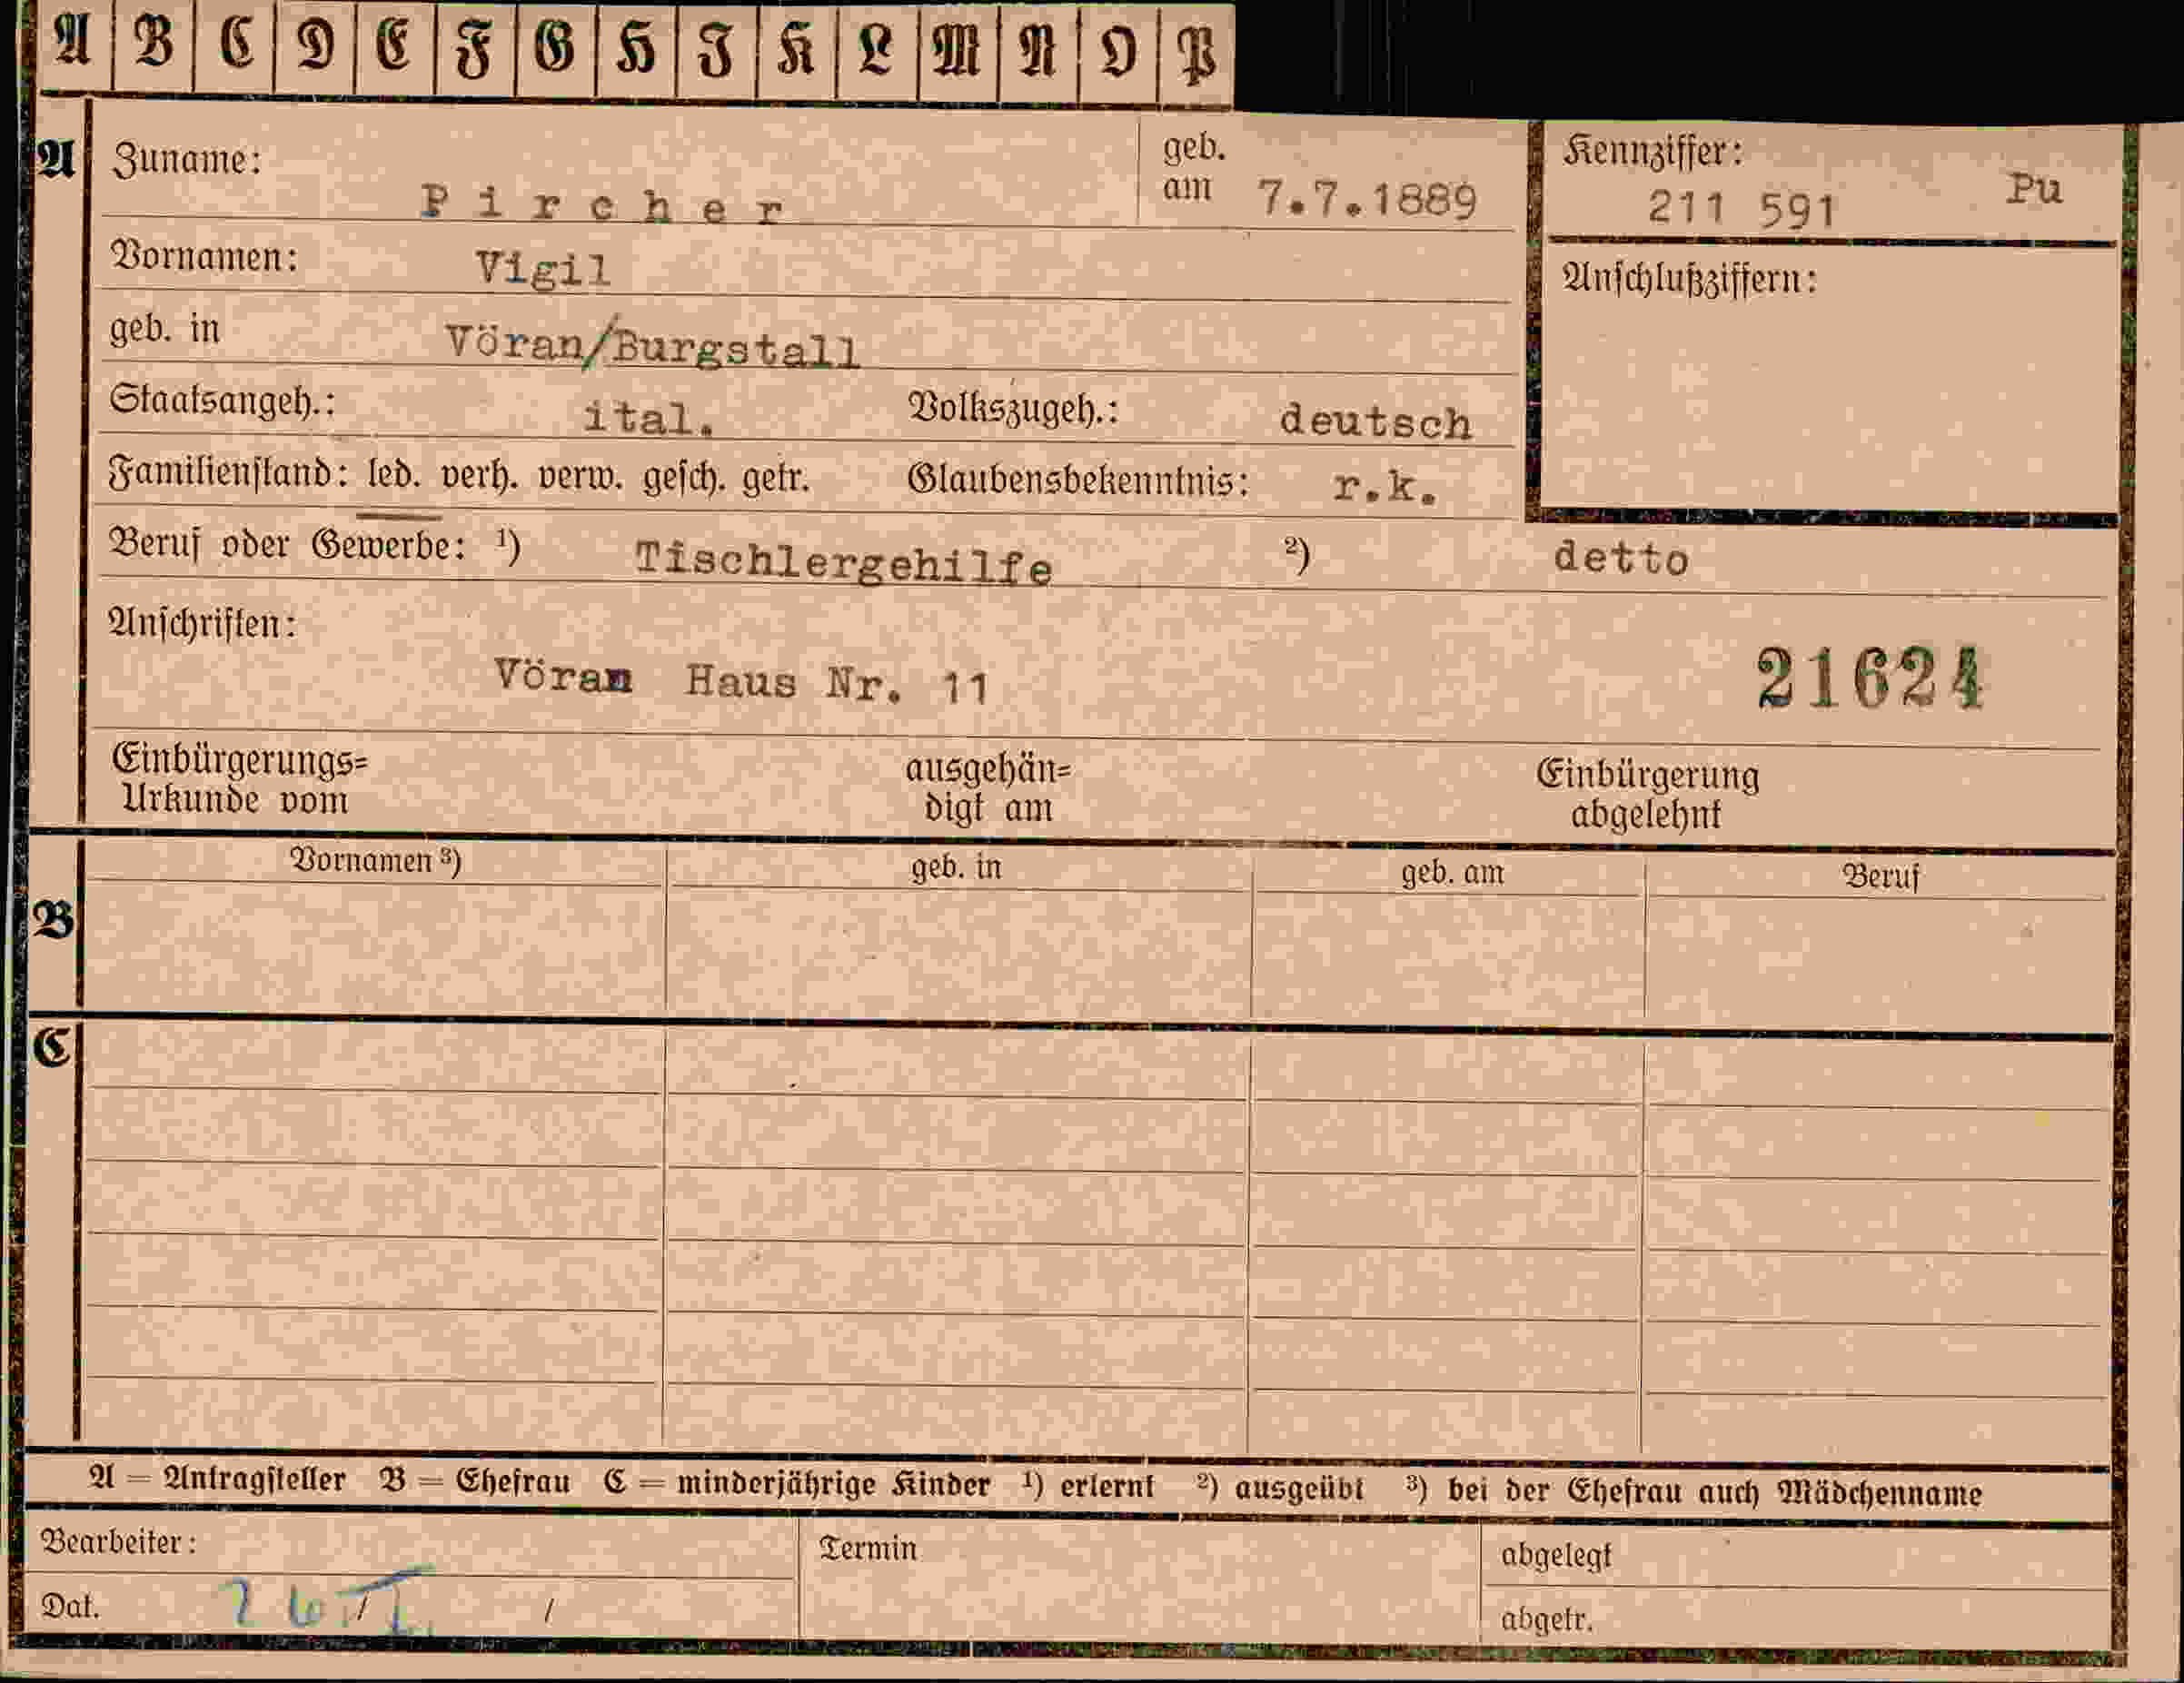 A B C D E F G H I K L M N O P
A Zuname: Pircher geb. am 7.7.1889 Kennziffer: 211 591 Pu
Vornamen: Vigil Anschlußziffern:
geb. in Vöran/Burgstall
Staatsangeh.: ital. Volkszugeh.: deutsch
Familienstand: led. verh. verw. gesch. getr. Glaubensbekenntnis: r.k.
Beruf oder Gewerbe: ¹) Tischlergehilfe ²) detto
Anschriften:
Vöran Haus Nr. 11 21624
Einbürgerungs= ausgehän= Einbürgerung
Urkunde vom digt am abgelehnt
Vornamen ³) geb. in geb. am Beruf
B
C
A = Antragsteller B = Ehefrau C = minderjährige Kinder ¹) erlernt ²) ausgeübt ³) bei der Ehefrau auch Mädchenname
Bearbeiter: Termin abgelegt
Dat. / / abgetr.